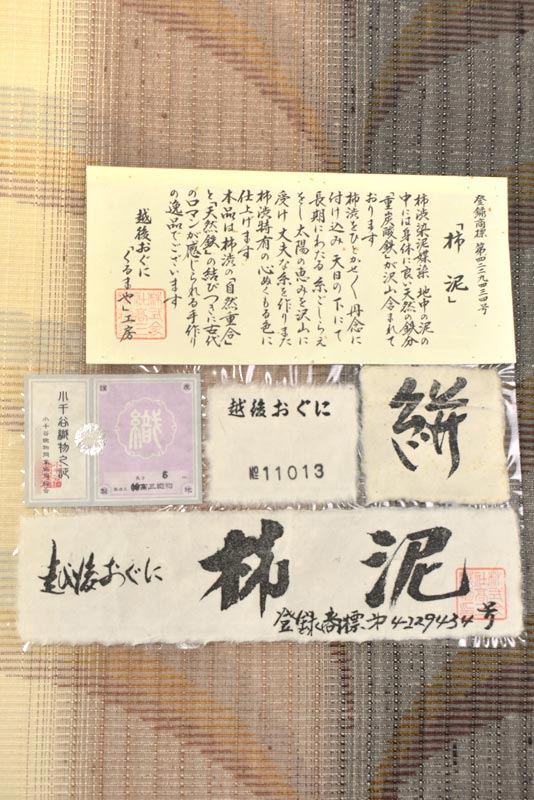 登録商標 第四二二九四三四号
「柿泥」
柿渋染泥媒染 地中の泥の
中には身体に良い天然の鉄分
「重炭酸鉄」が沢山含まれて
おります
柿渋をひとかせづく丹念に
付け込み、天日の下にて
長期にわたる糸ごしらえ
をし太陽の恵みを沢山に
受け 丈夫な糸を作りまた
柿渋特有の心ぬくもる色に
仕上げます
本品は柿渋の「自然重合」
と「天然鉄」の結びつきに古代
のロマンが感じられる手作り
の逸品でございます
越後おぐに
「くるまや」工房
小千谷織物之証
小千谷織物同業協同組合
織
6
越後おぐに
No 11013
絣
越後おぐに 柿泥
登録商標第4229434号